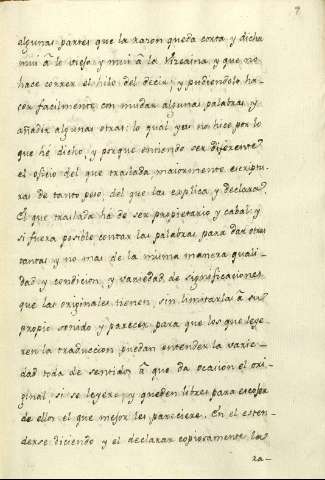 7
algunas partes que la razon queda corta, y dicha
mui à lo viejo y mui à la Vizcaina, y que no
hace correr el hilo del decir, y pudiendolo ha-
cer facilmente con mudar algunas palabras, y
añadir algunas otras: lo qual yo no hice por lo
que hé dicho, y porque entiendo ser diferente
el oficio del que traslada maiormente escriptu-
ras de tanto peso, del que las explica, y declara.
El que traslada há de ser propietario y cabal, y
si fuera posible contar las palabras para dar otras
tantas y no mas de la misma manera quali-
dad, y condicion, y variedad de significaciones
que las originales tienen, sin limitarlas à su
propio sonido y parecer, para que los que leye-
ren la traduccion puedan entender la varie-
dad toda de sentidos à que da ocasion el ori-
ginal si se leyere, y queden libres para escoger
de ellos el que mejor les pareciere. En el esten-
derse diciendo y el declarar copiosamente la
ra-